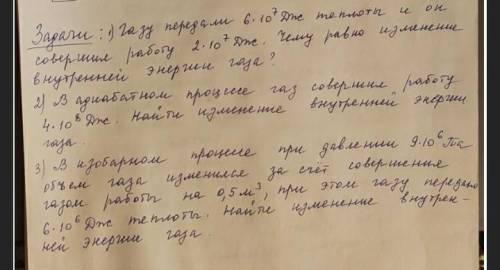 Задачи: 1) Газу передали 6·10⁷ Дж теплоты и он
совершил работу 2·10⁷ Дж. Чему равно изменение
внутренней энергии газа?
2) В адиабатном процессе газ совершил работу
4·10⁸ Дж. Найти изменение внутренней энергии
газа.
3) В изобарном процессе при давлении 9·10⁶ Па
объем газа изменился за счёт совершения
газом работы на 0,5 м³, при этом газу передано
6·10⁶ Дж теплоты. Найти изменение внутрен-
ней энергии газа.